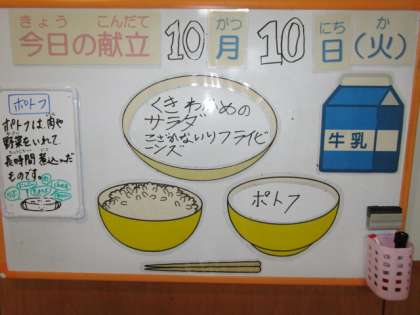 きょう こんだて がつ にち か
今日の献立 10月10日(火)
ポトフ
ポトフは、肉や
野菜をいれて、
長時間煮込んだ
ものです。
くきわかめの
サラダ
こざかないりフライビ
ーンズ
牛乳
ポトフ